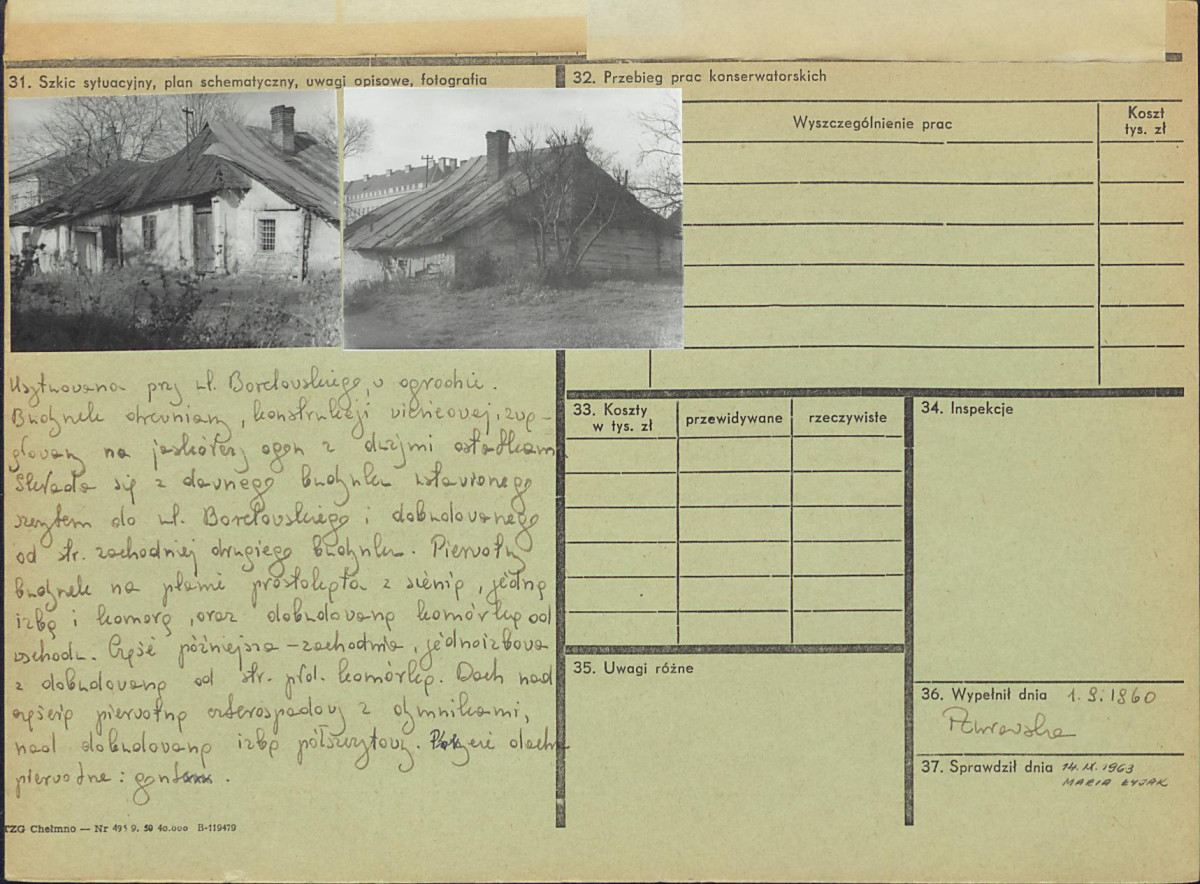 31. Szkic sytuacyjny, plan schematyczny, uwagi opisowe, fotografia
Usytuowana przy ul. Borelowskiego, w ogrodzie.
Budynek drewniany, konstrukcji wieńcowej, zwę-
głowany na jaskółczy ogon z dużymi ostatkami
Składa się z dawnego budynku ustawionego
szczytem do ul. Borelowskiego i dobudowanego
od str. zachodniej drugiego budynku. Pierwotny
budynek na planie prostokąta z sienią, jedną
izbą i komorą, oraz dobudowaną komórką od
wschodu. Część późniejsza – zachodnia, jednoizbowa
z dobudowaną od str. płd. komórką. Dach nad
częścią pierwotną czterospadowy z dymnikami,
nad dobudowaną izbą półszczytowy. dachu
pierwotne: gont
TZG Chełmno — Nr 495 9. 59 40.000 B-119479
32. Przebieg prac konserwatorskich
Wyszczególnienie prac
Koszt
tys. zł
33. Koszty
w tys. zł
przewidywane
rzeczywiste
34. Inspekcje
35. Uwagi różne
36. Wypełnił dnia 1.9.1960
37. Sprawdził dnia 14.IX.1963
MARIA ŁYJAK